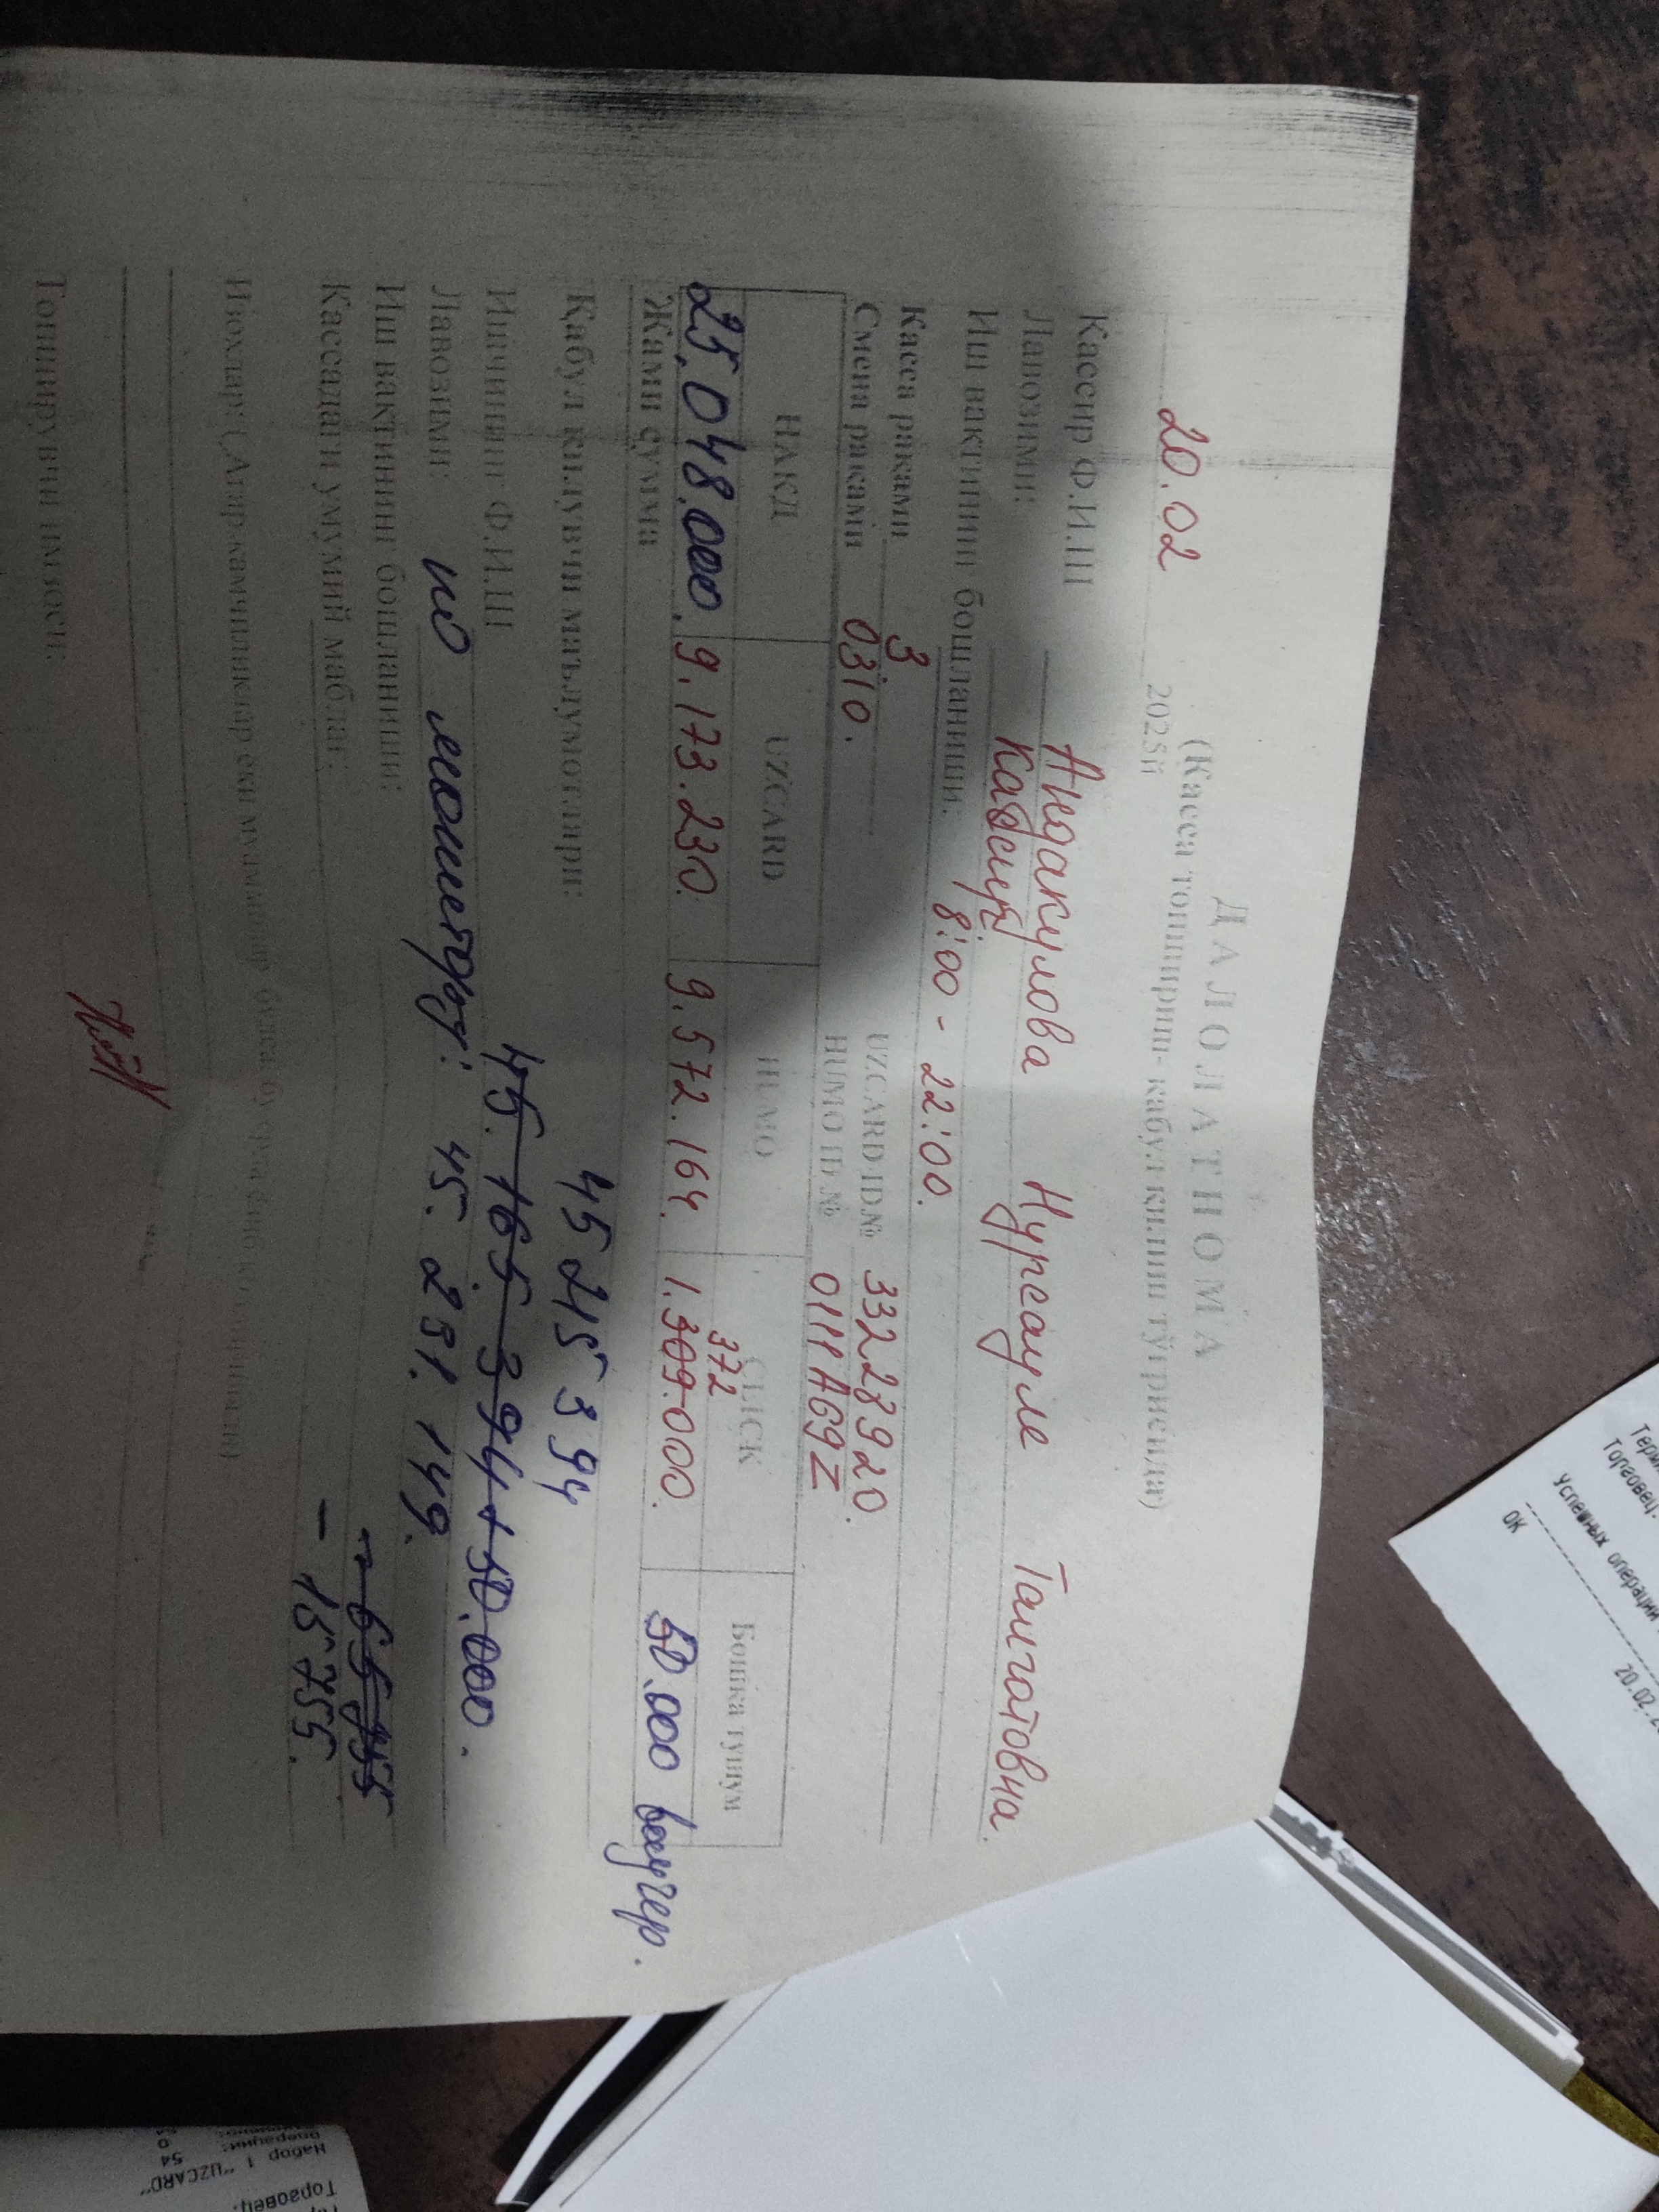 ДАЛОЛАТНОМА
(Касса топшириш- кабул килиш тўғрисида)
20.02 2025й
Кассир Ф.И.Ш Андакулова Нурсауле Талгатовна.
Лавозими: Кассир
Иш вактининг бошланиши: 8:00 - 22:00.
Касса раками 3 UZCARD ID№ 33228920.
Смена раками 0310. HUMO ID № 0111A69Z
НАКД UZCARD HUMO CLICK Бошка тушум
372
25.048.000. 9.173.230. 9.572.164. 1.309.000. 50.000 ваучер.
Жами сумма
45 215 394
Кабул килувчи маълумотлари:
45.165.394+50.000.
Ишчининг Ф.И.Ш
Лавозими: по монитору: 45.231.149.
Иш вактининг бошланиши:
- 65 755
Кассадаги умумий маблағ: - 15 755.
Изохлар: (Агар камчиликлар ёки муаммолар бўлса бу ерга ёзиб
Топширувчи имзоси:
Терм
Торговец:
Успешных операций
ОК
20.02.2
Торговец:
Набор 1 "UZCARD"
54
0
54